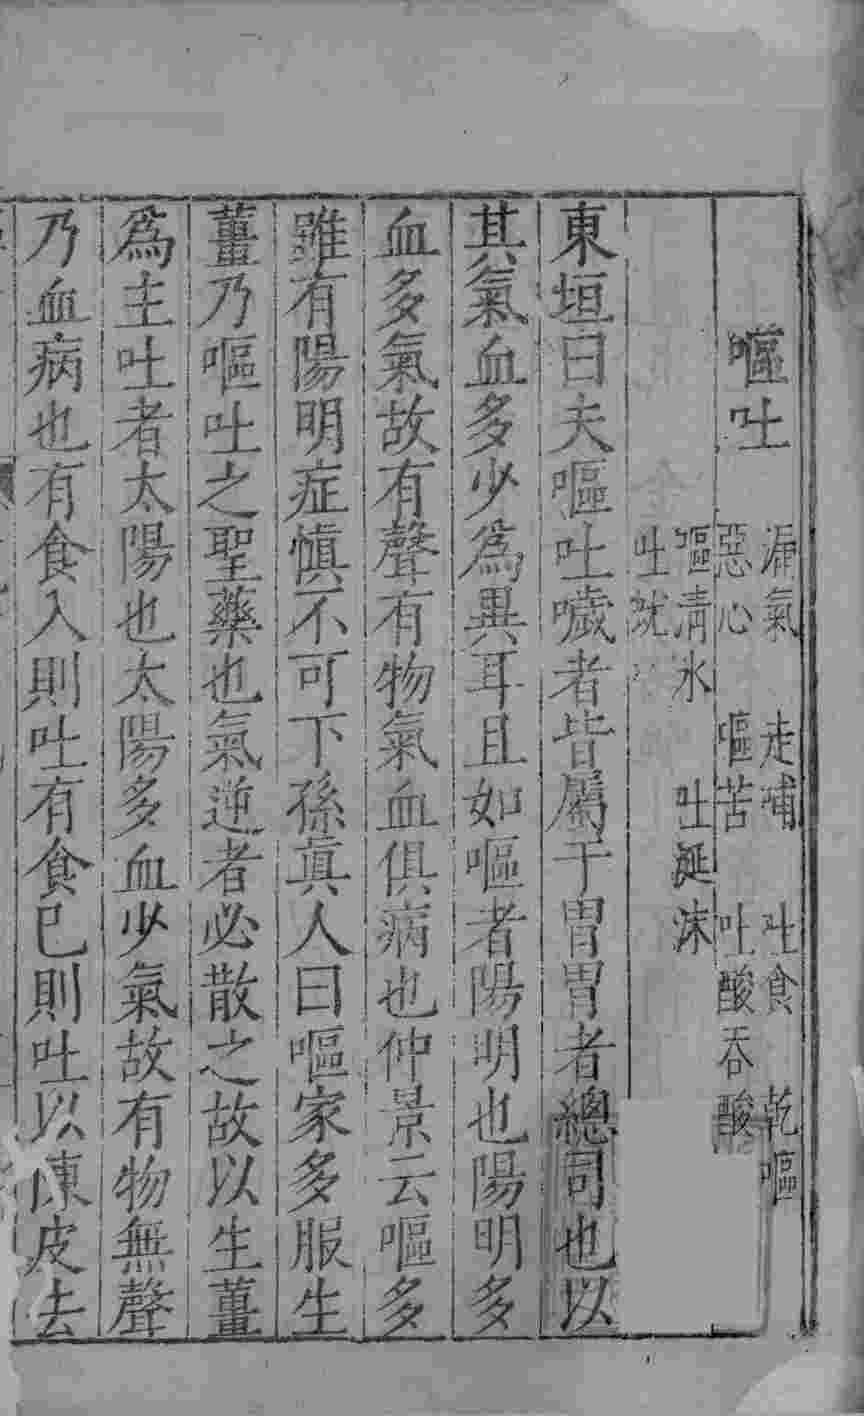 嘔吐
漏氣 走哺 吐食 乾嘔
惡心 嘔苦 吐酸吞酸
嘔清水 吐涎沫
吐蚘
東垣曰夫嘔吐噦者皆屬于胃胃者總司也以
其氣血多少爲異耳且如嘔者陽明也陽明多
血多氣故有聲有物氣血俱病也仲景云嘔多
雖有陽明症慎不可下孫眞人曰嘔家多服生
薑乃嘔吐之聖藥也氣逆者必散之故以生薑
爲主吐者太陽也太陽多血少氣故有物無聲
乃血病也有食入則吐有食已則吐以陳皮去